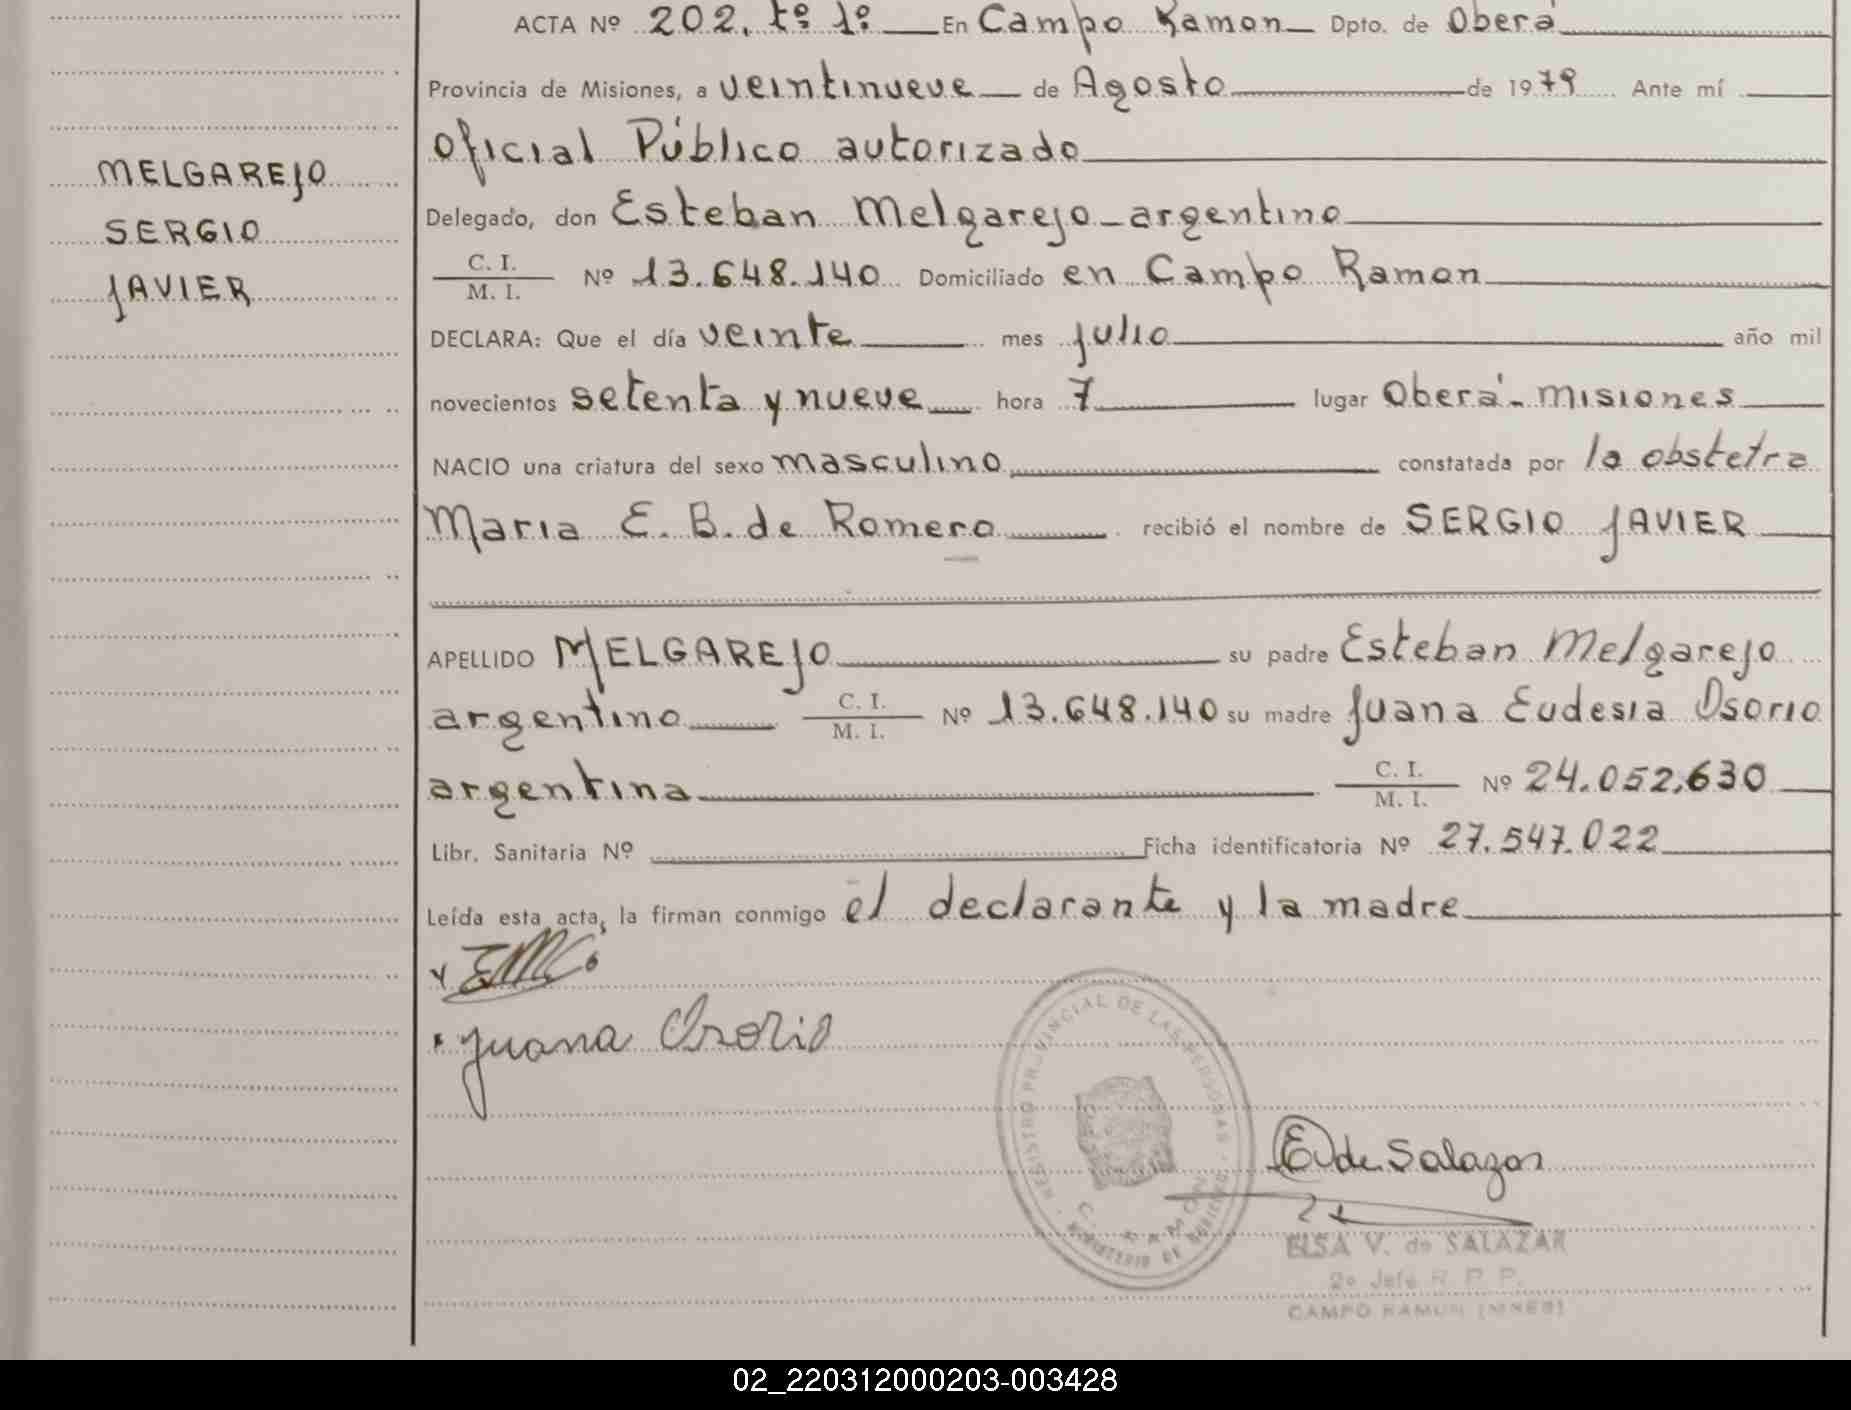 ACTA Nº 202. tº 1º En Campo Ramon Dpto. de Oberá
Provincia de Misiones, a veintinueve de Agosto de 1979 Ante mí
Oficial Público autorizado
MELGAREJO
Delegado, don Esteban Melgarejo - argentino
SERGIO
C. I.
M. I.
Nº 13.648.140 Domiciliado en Campo Ramon
JAVIER
DECLARA: Que el día veinte mes julio año mil
novecientos setenta y nueve hora 7 lugar Oberá - misiones
NACIO una criatura del sexo masculino constatada por la obstetra
Maria E. B. de Romero recibió el nombre de SERGIO JAVIER
APELLIDO MELGAREJO su padre Esteban Melgarejo
argentino C. I.
M. I.
Nº 13.648.140 su madre Juana Eudesia Osorio
argentina C. I.
M. I.
Nº 24.052.630
Libr. Sanitaria Nº Ficha identificatoria Nº 27.547.022
Leída esta acta, la firman conmigo el declarante y la madre
Juana Osorio
REGISTRO PROVINCIAL DE LAS PERSONAS
C. RAMON
MINISTERIO DE GOBIERNO
E de Salazar
ELSA V. de SALAZAR
2º Jefe R. P. P.
CAMPO RAMON (MNES)
02_220312000203-003428